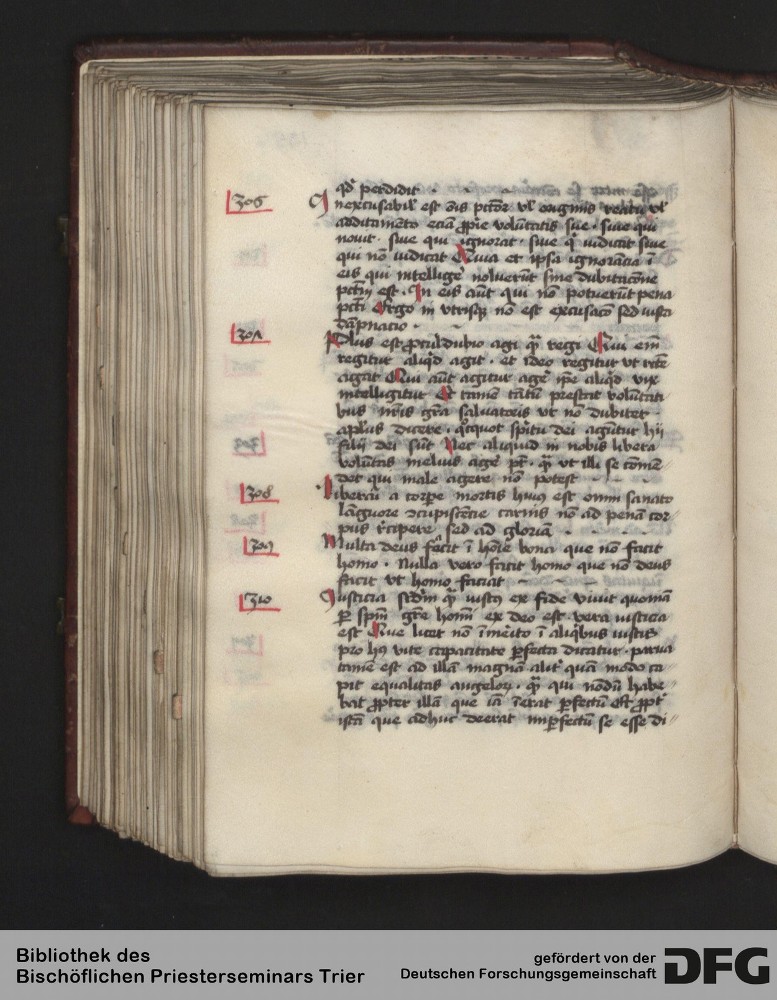 qd perdidit
306 Inexcusabil' est ōis pctōr vl' originis reatu vl'
additamēto eciā ꝓpie volūtatis sue · siue qui
nouit · siue qui ignorat · siue q iudicat siue
qui nō iudicat Quia et ipsa ignorācia ī
eis qui intellige noluerūt sine dubitacōne
pctm̄ est · In eis aūt qui nō potuerūt pena
pcti Ergo in vtrisq nō est excusacō sed iusta
dāpnacio ·
307 Plus est ꝓculdubio agi qͣ regi Qui em̄
regitur aliqd agit · et ideo regitur vt rcte
agat Qui aūt agitur age ipe aliqd vix
intelligitur Et tamē tātū prestat volūtati
bus nr̄is grā saluatoris vt nō dubitet ·
aplus dicere · qͦtquot spītu dei agūtur hij
filij dei sūt Nec aliquid in nobis libera
volūtas melius age pt · qͣ vt illi se cōmē
det qui male agere nō potest
308 Liberari a corpe mortis huius est omni sanato
lāguore ↄcupiscēcie carnis nō ad penā cor
pus rcipere sed ad gloriā
309 Multa deus facit ī hoīe bona que nō facit
homo · Nulla vero facit homo que nō deus
facit vt homo faciat
310 Iusticia scdm qͣ iustus ex fide viuit quoniā
ꝑ spm̄ grē homī ex deo est · vera iusticia
est Que licet nō īmerito ī aliqbus iustis
pro hꝰ vite capacitate ꝑfecta dicatur · parua
tamē est ad illā magnā · quā modo ca
pit equalitas angeloꝝ · qͣ qui nōdū habe
bat ꝓpter illā que iā īerat ꝑfectū et ꝓpt
istā que adhuc deerat imꝑfectū se esse di
Bibliothek des
Bischöflichen Priesterseminars Trier
gefördert von der
Deutschen Forschungsgemeinschaft
DFG